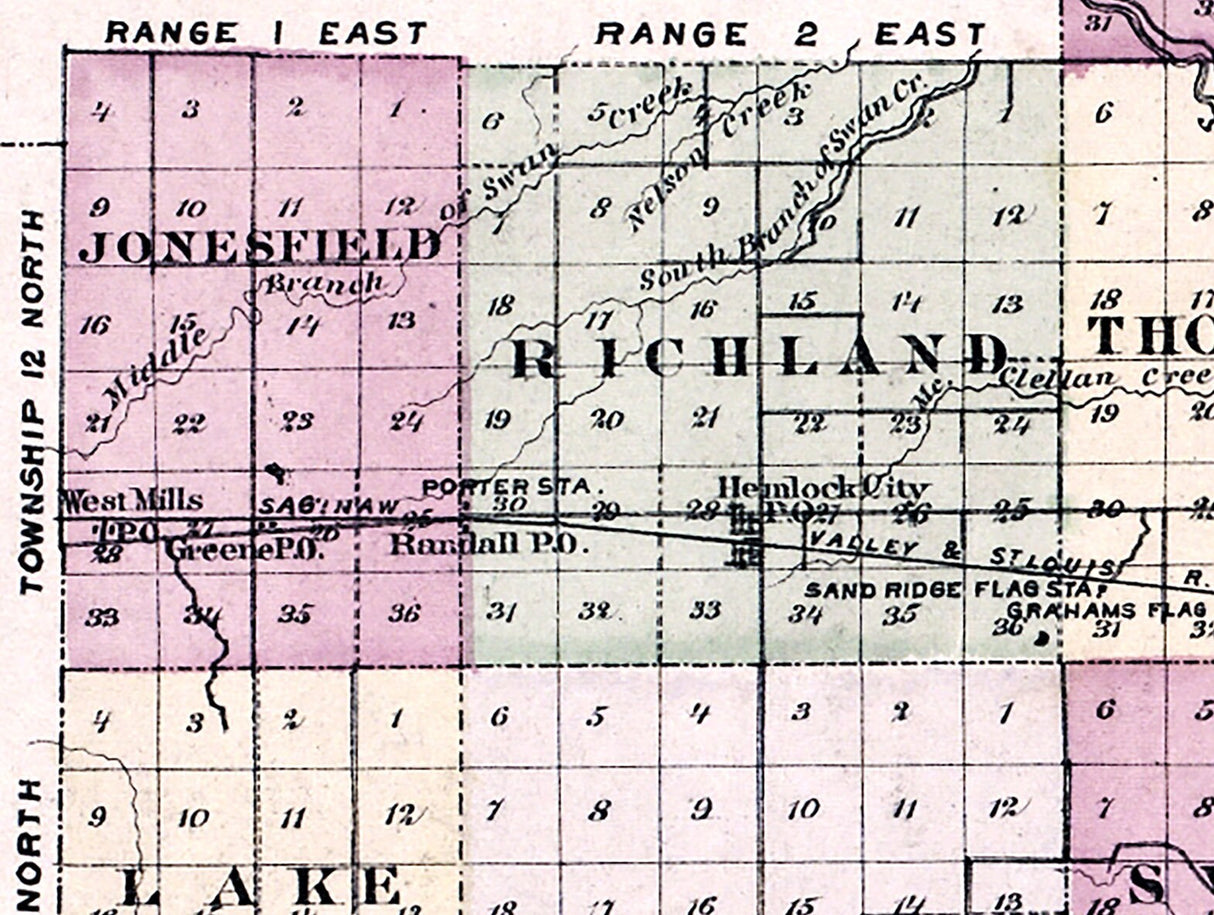 RANGE 1 EAST RANGE 2 EAST 31
4 3 2 1 6 5 Creek 4 Creek 3 2 1 6
South Branch of Swan Cr.
Middle Branch of Swan Creek
Nelson Creek
9 10 11 12 7 8 9 10 11 12 7 8
JONESFIELD
TOWNSHIP 12 NORTH
16 15 14 13 18 17 16 15 14 13 18 17
RICHLAND THO
Mc. Clellan Cree
21 22 23 24 19 20 21 22 23 24 19 20
West Mills SAGINAW PORTER STA. Hemlock City
P.O. 27 26 25 30 29 28 P.O. 27 26 25 30 29
28 Greene P.O. Randall P.O. VALLEY & ST. LOUIS R.
SAND RIDGE FLAG STA.
GRAHAMS FLAG
33 34 35 36 31 32 33 34 35 36 31 32
4 3 2 1 6 5 4 3 2 1 6 5
9 10 11 12 7 8 9 10 11 12 7 8
NORTH
LAKE S
18 17 16 15 14 13 18